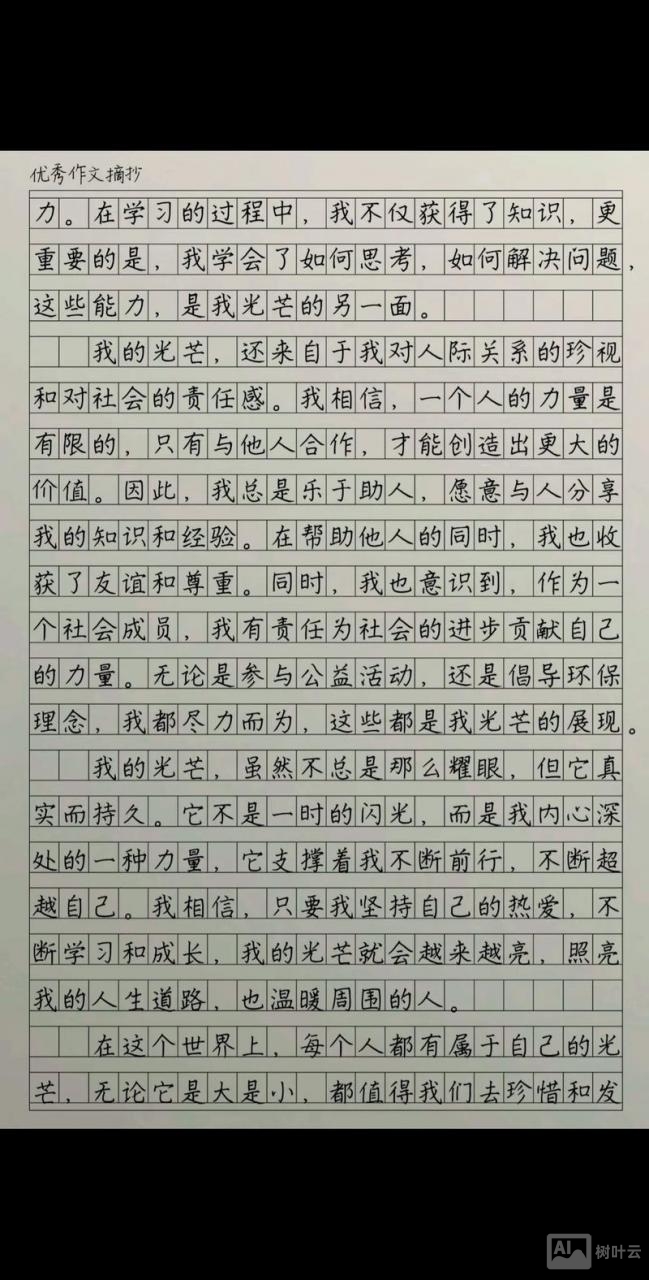 优秀作文摘抄
力。在学习的过程中，我不仅获得了知识，更
重要的是，我学会了如何思考，如何解决问题，
这些能力，是我光芒的另一面。
我的光芒，还来自于我对人际关系的珍视
和对社会的责任感。我相信，一个人的力量是
有限的，只有与他人合作，才能创造出更大的
价值。因此，我总是乐于助人，愿意与人分享
我的知识和经验。在帮助他人的同时，我也收
获了友谊和尊重。同时，我也意识到，作为一
个社会成员，我有责任为社会的进步贡献自己
的力量。无论是参与公益活动，还是倡导环保
理念，我都尽力而为，这些都是我光芒的展现。
我的光芒，虽然不总是那么耀眼，但它真
实而持久。它不是一时的闪光，而是我内心深
处的一种力量，它支撑着我不断前行，不断超
越自己。我相信，只要我坚持自己的热爱，不
断学习和成长，我的光芒就会越来越亮，照亮
我的人生道路，也温暖周围的人。
在这个世界上，每个人都有属于自己的光
芒，无论它是大是小，都值得我们去珍惜和发
AI 树叶云